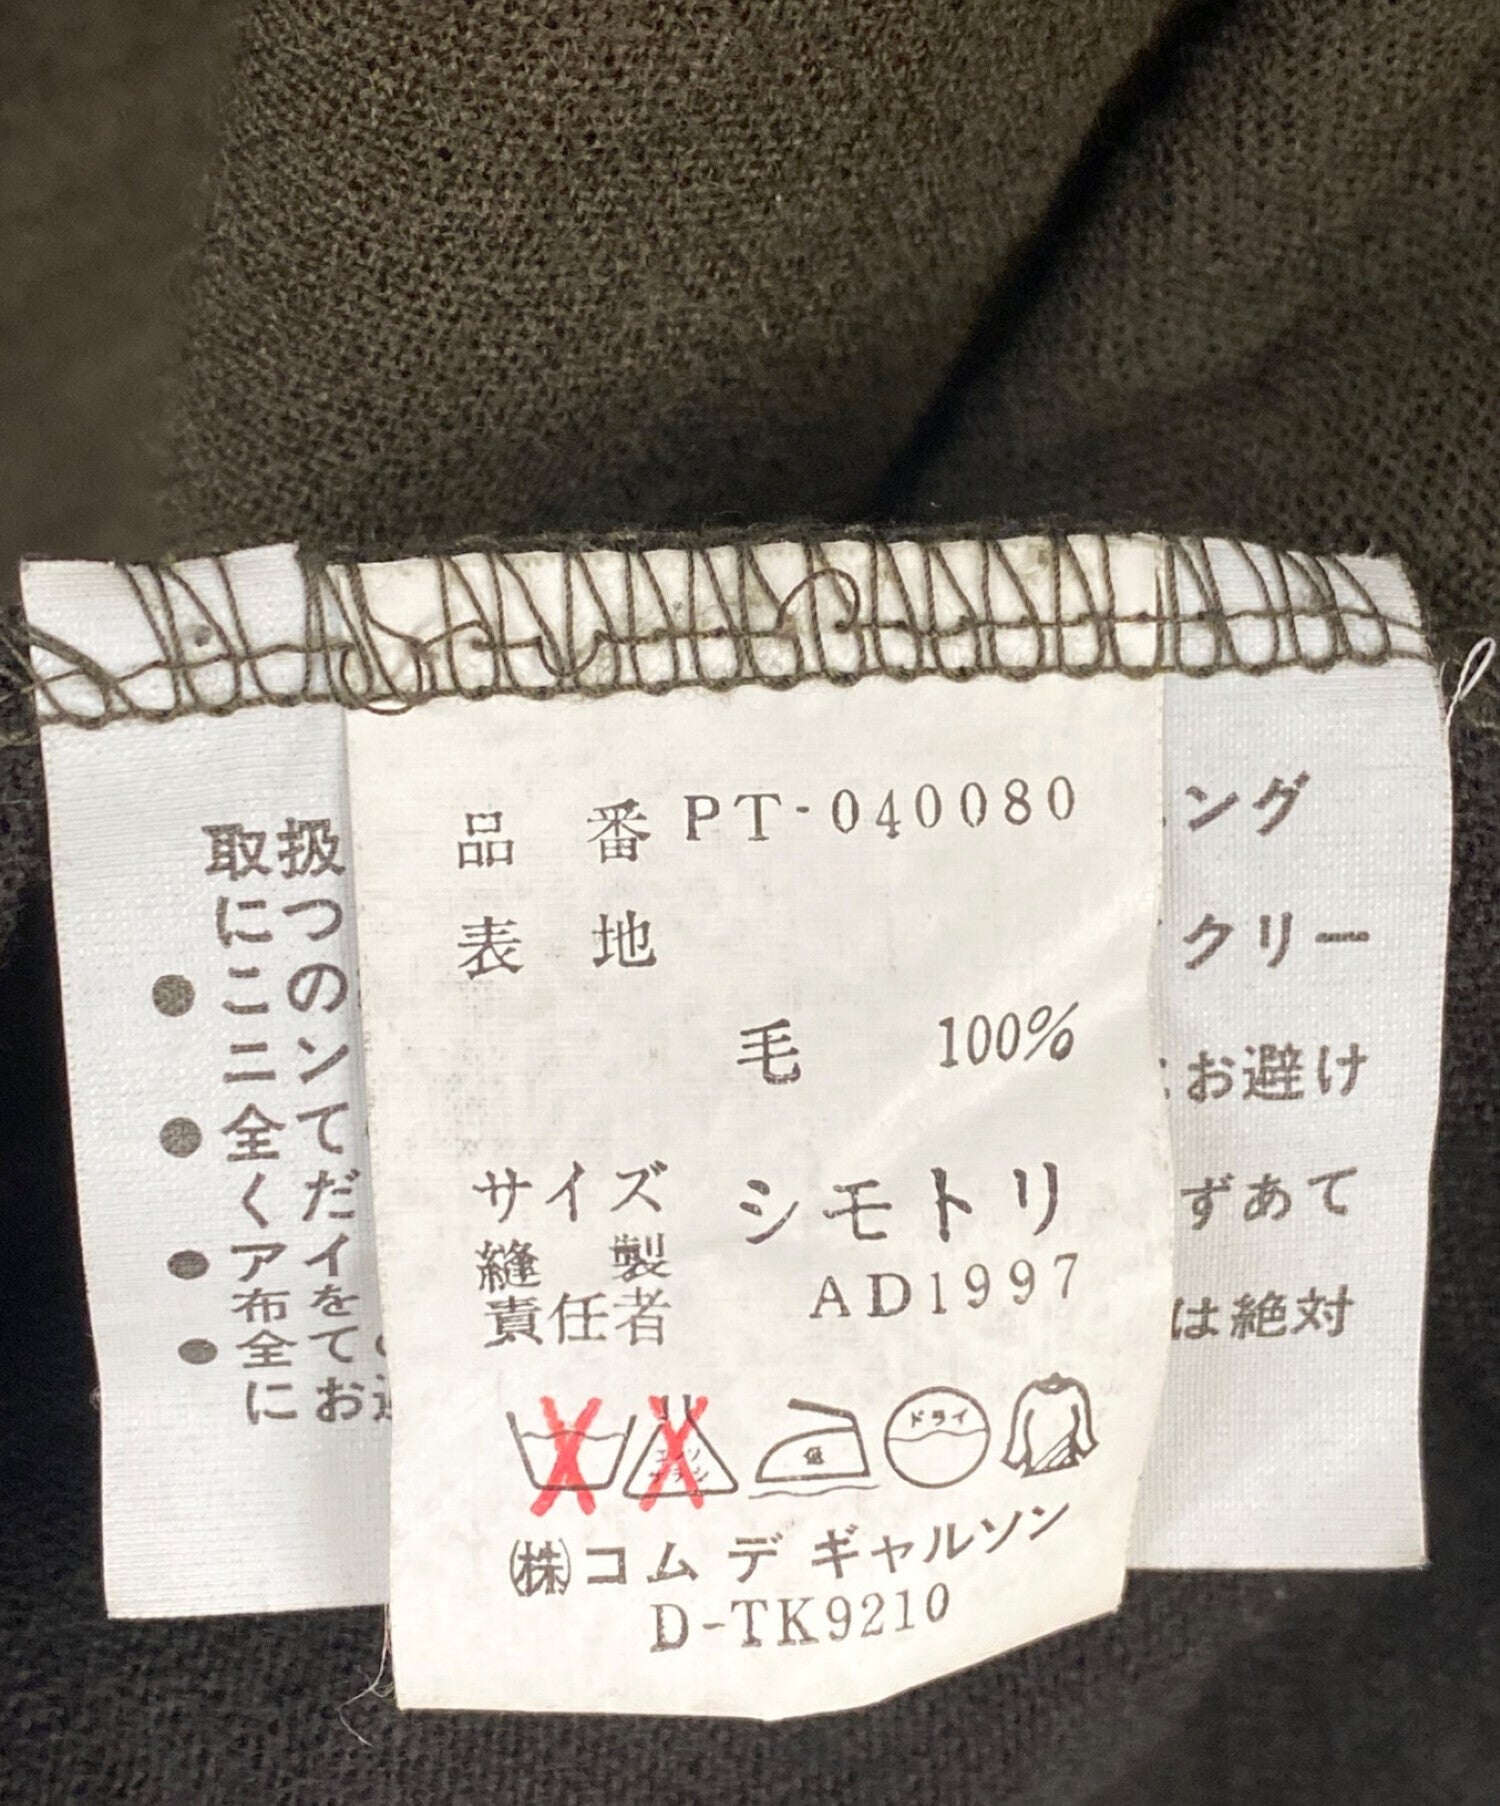 品番 PT-040080
表地
毛 100%
サイズ シモトリ
縫製
責任者 AD1997
低
ドライ
㈱コム デ ギャルソン
D-TK9210
取扱
につ
● この
ニン
● 全て
くだ
● アイ
布を
● 全て
にお
ング
クリー
お避け
ずあて
は絶対